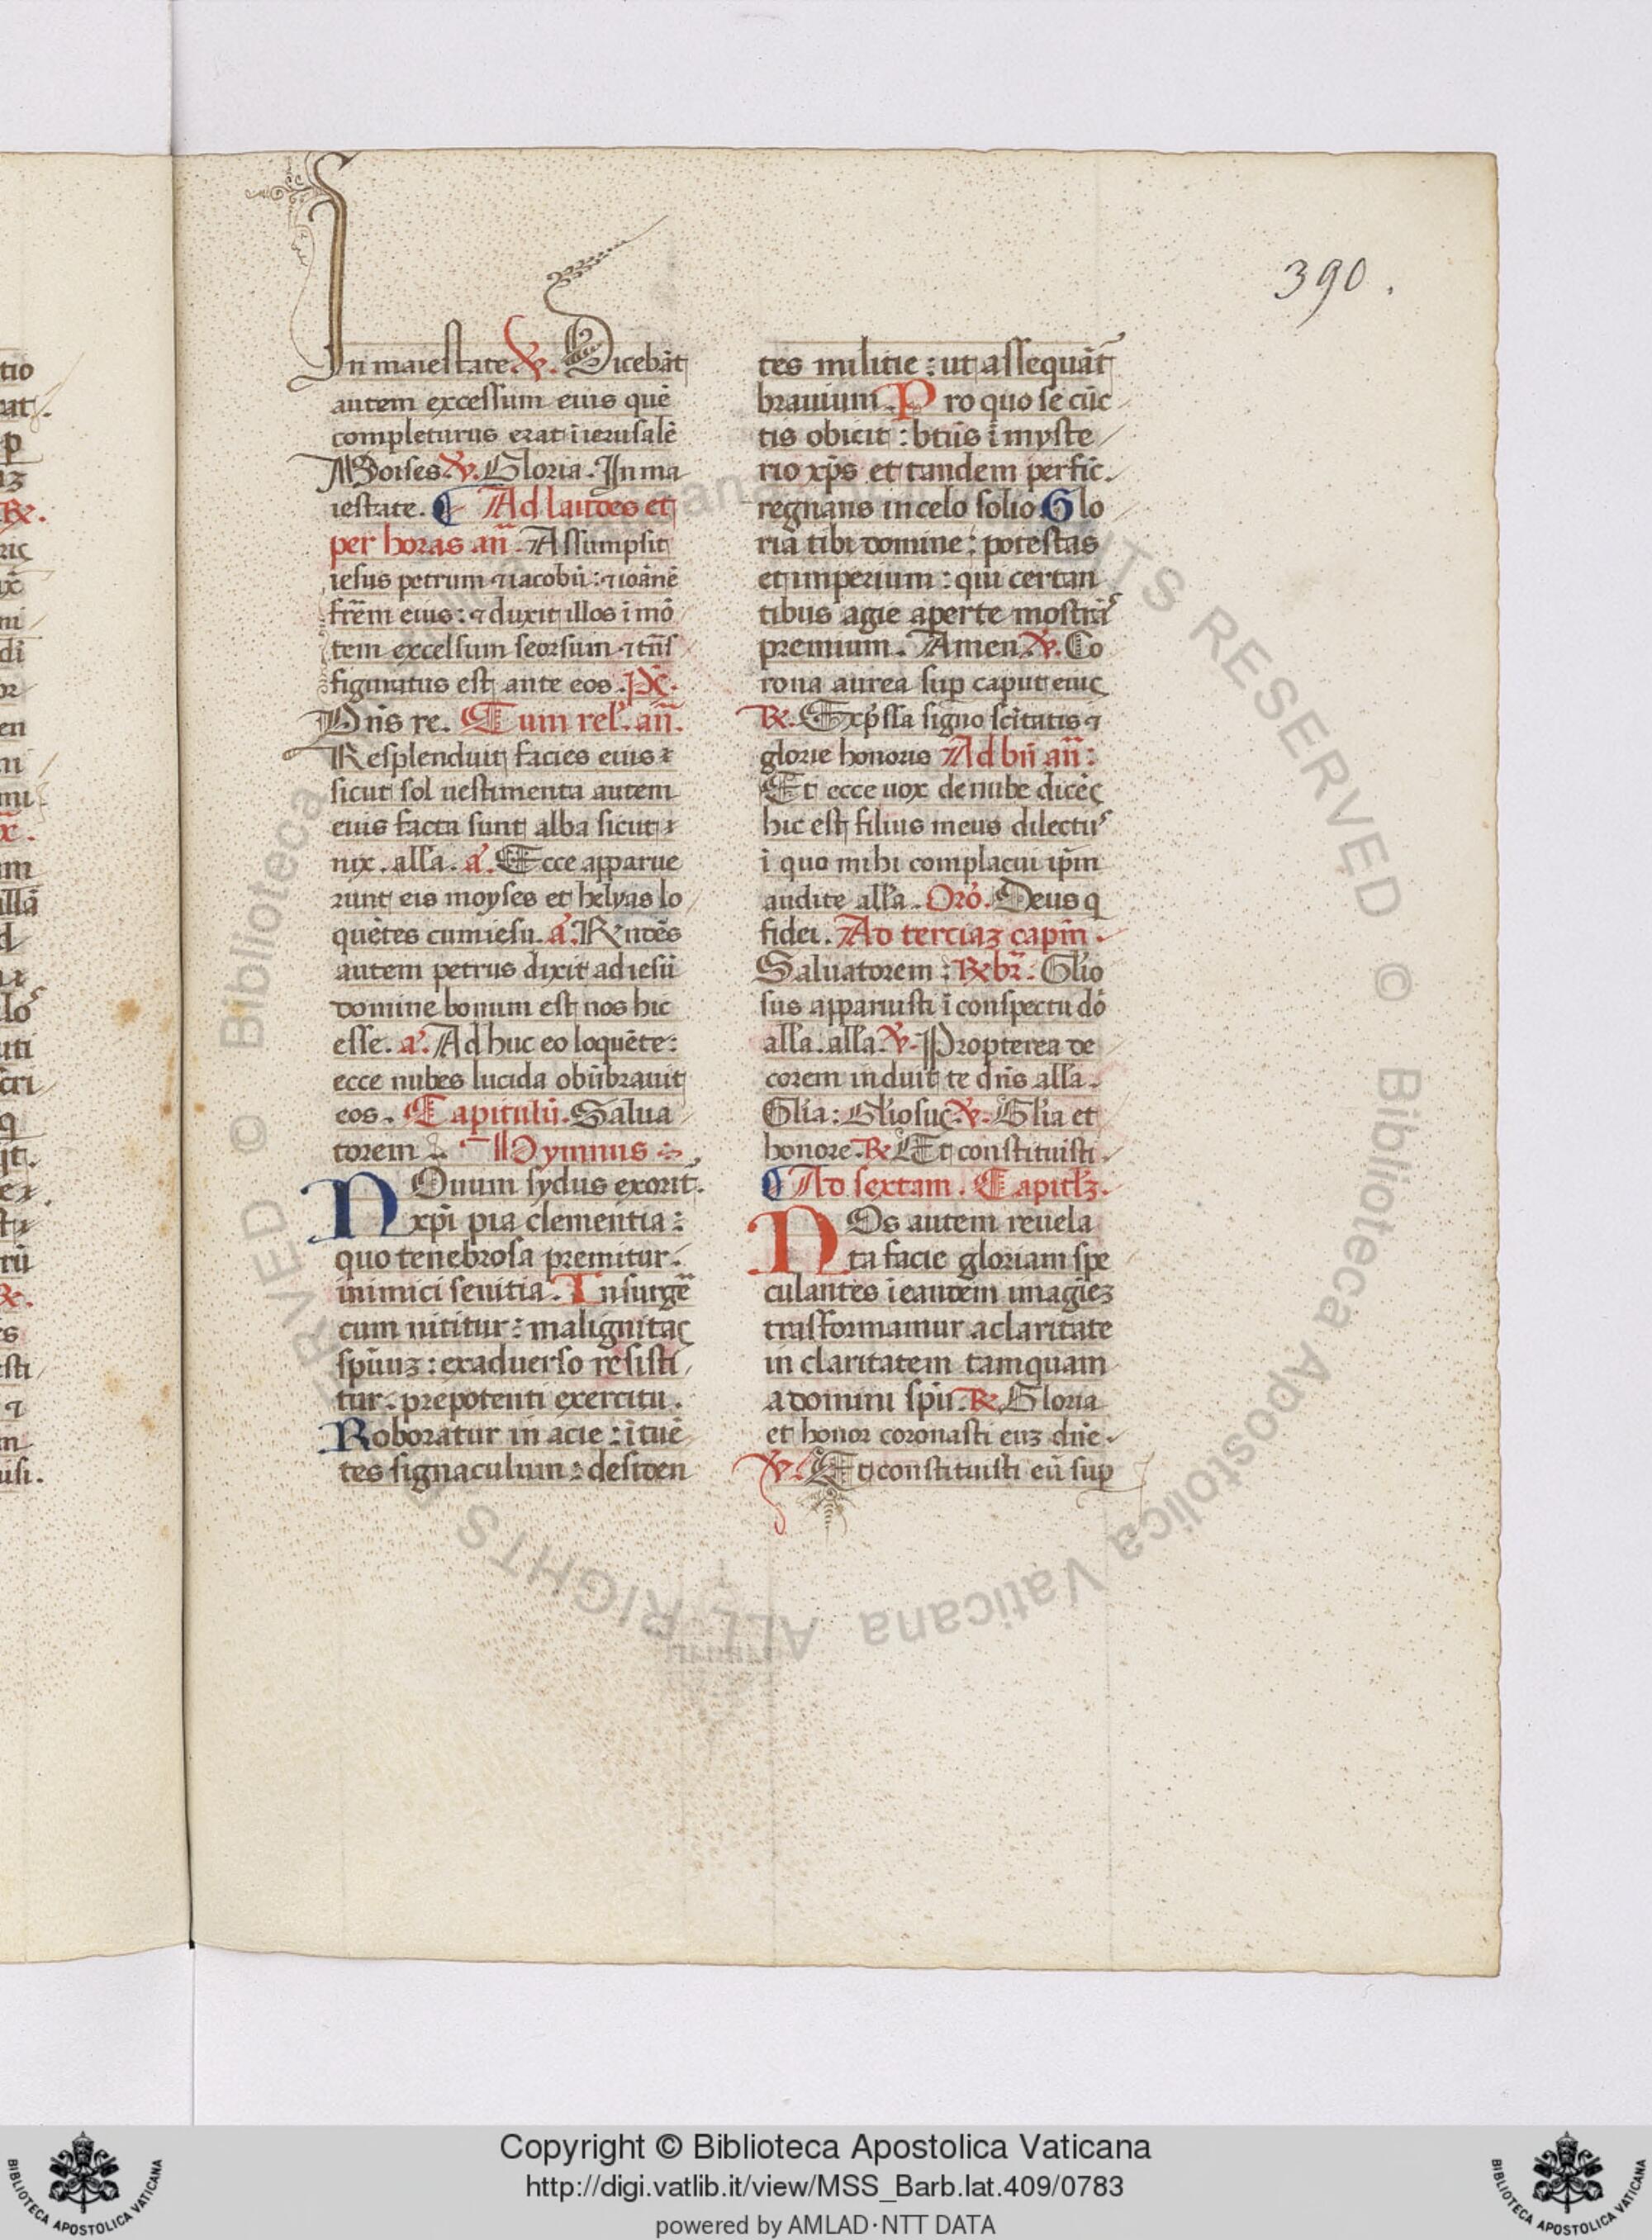 390.
In maiestate ℣. Dicebāt
autem excessum eius quē
completurus erat ī ierusalē
Moises ℣. Gloria. In ma
iestate. ¶ Ad laudes et
per horas añ. Assumpsit
iesus petrum ⁊ iacobū: ⁊ ioānē
frēm eius: ⁊ duxit illos ī mō
tem excelsum seorsum ⁊ tñs
figuratus est ante eos. p̄s.
Dñs re. Cum rel'. añ.
Resplenduit facies eius
sicut sol uestimenta autem
eius facta sunt alba sicut
nix. alla. a'. Ecce apparue
runt eis moyses et helyas lo
quētes cum iesu. a'. Rñdēs
autem petrus dixit ad iesū
domine bonum est nos hic
esse. a'. Ad huc eo loquēte:
ecce nubes lucida obūbrauit
eos. Capitulū. Salua
torem Hymnus
NOuum sydus exorit̄.
xp̄i pia clementia:
quo tenebrosa premitur.
inimici seuitia. Insurgē
cum nititur: malignitas
spūuꝫ: ex aduerso resisti
tur: prepotenti exercitu.
Roboratur in acie: ī tuē
tes signaculum: desiden
tes militie: ut assequāt̄
brauium. Pro quo se cūc
tis obicit: btūs ī myste
rio xp̄s et tandem perfic̄.
regnans in celo solio Glo
ria tibi domine: potestas
et imperium: qui certan
tibus agie aperte mostrā
premium. Amen. ℣. Co
rona aurea sup caput eius
℟. Exp̄ssa signo scītatis ⁊
glorie honoris Ad bñ añ:
Et ecce uox de nube dicēs
hic est filius meus dilectus
ī quo mihi complacui ip̄m
audite alla. Orō. Deus q
fidei. Ad terciaꝫ capīm.
Saluatorem: ℟ br̄. Glio
sus apparuisti ī conspectu dō
alla. alla. ℣. Propterea de
corem induit te dñs alla.
Glia: Gliosus ℣. Glia et
honore. ℟ Et constituisti.
¶ Ad sextam. Capitl'ꝫ.
NOs autem reuela
ta facie gloriam spe
culantes ī eandem imagīeꝫ
trasformamur a claritate
in claritatem tamquam
a domini spū. ℟. Gloria
et honor coronasti euꝫ dñe.
℣. Et constituisti eū sup
Copyright © Biblioteca Apostolica Vaticana
http://digi.vatlib.it/view/MSS_Barb.lat.409/0783
powered by AMLAD·NTT DATA